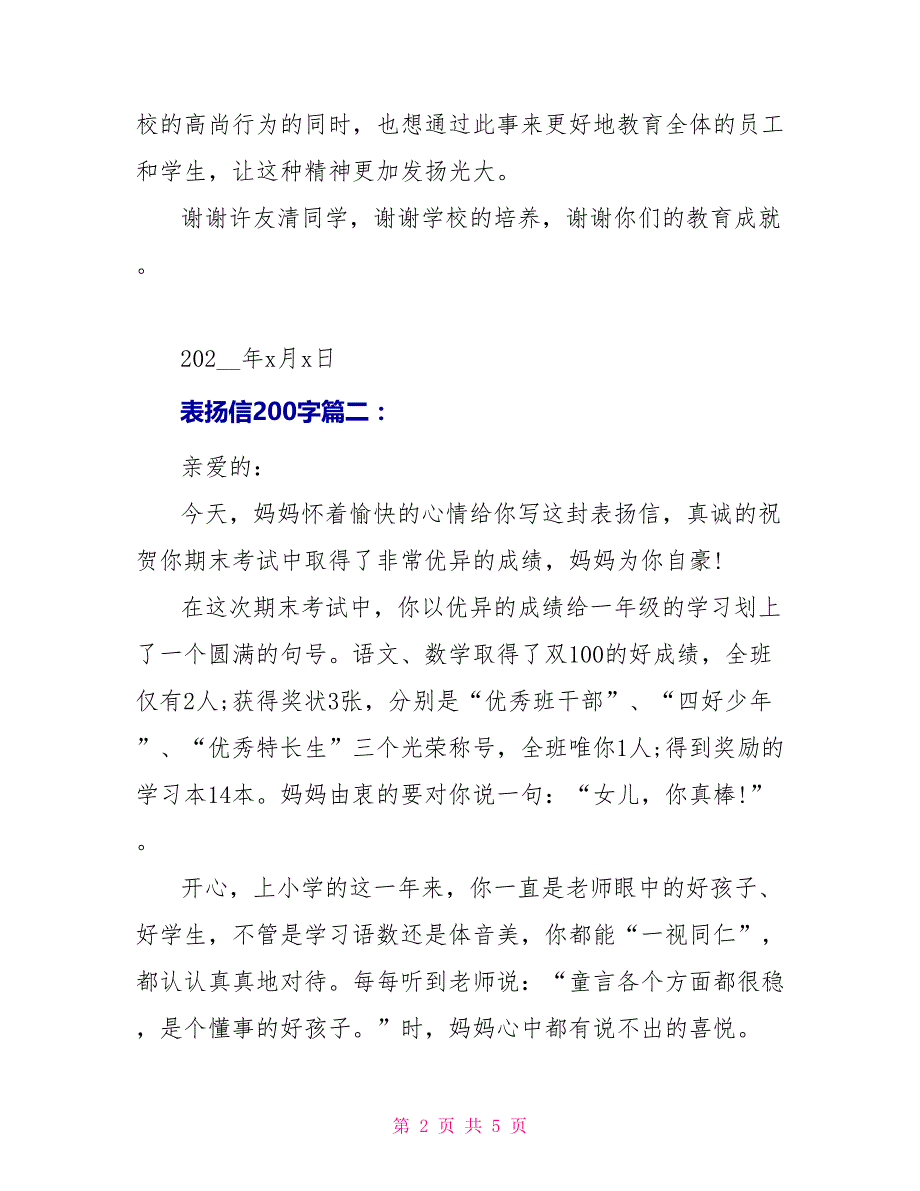 校的高尚行为的同时，也想通过此事来更好地教育全体的员工
和学生，让这种精神更加发扬光大。
谢谢许友清同学，谢谢学校的培养，谢谢你们的教育成就
。
202__年x月x日
表扬信200字篇二：
亲爱的：
今天，妈妈怀着愉快的心情给你写这封表扬信，真诚的祝
贺你期末考试中取得了非常优异的成绩，妈妈为你自豪!
在这次期末考试中，你以优异的成绩给一年级的学习划上
了一个圆满的句号。语文、数学取得了双100的好成绩，全班
仅有2人;获得奖状3张，分别是“优秀班干部”、“四好少年
”、“优秀特长生”三个光荣称号，全班唯你1人;得到奖励的
学习本14本。妈妈由衷的要对你说一句：“女儿，你真棒!”
。
开心，上小学的这一年来，你一直是老师眼中的好孩子、
好学生，不管是学习语数还是体音美，你都能“一视同仁”，
都认认真真地对待。每每听到老师说：“童言各个方面都很稳
，是个懂事的好孩子。”时，妈妈心中都有说不出的喜悦。
第 2 页 共 5 页